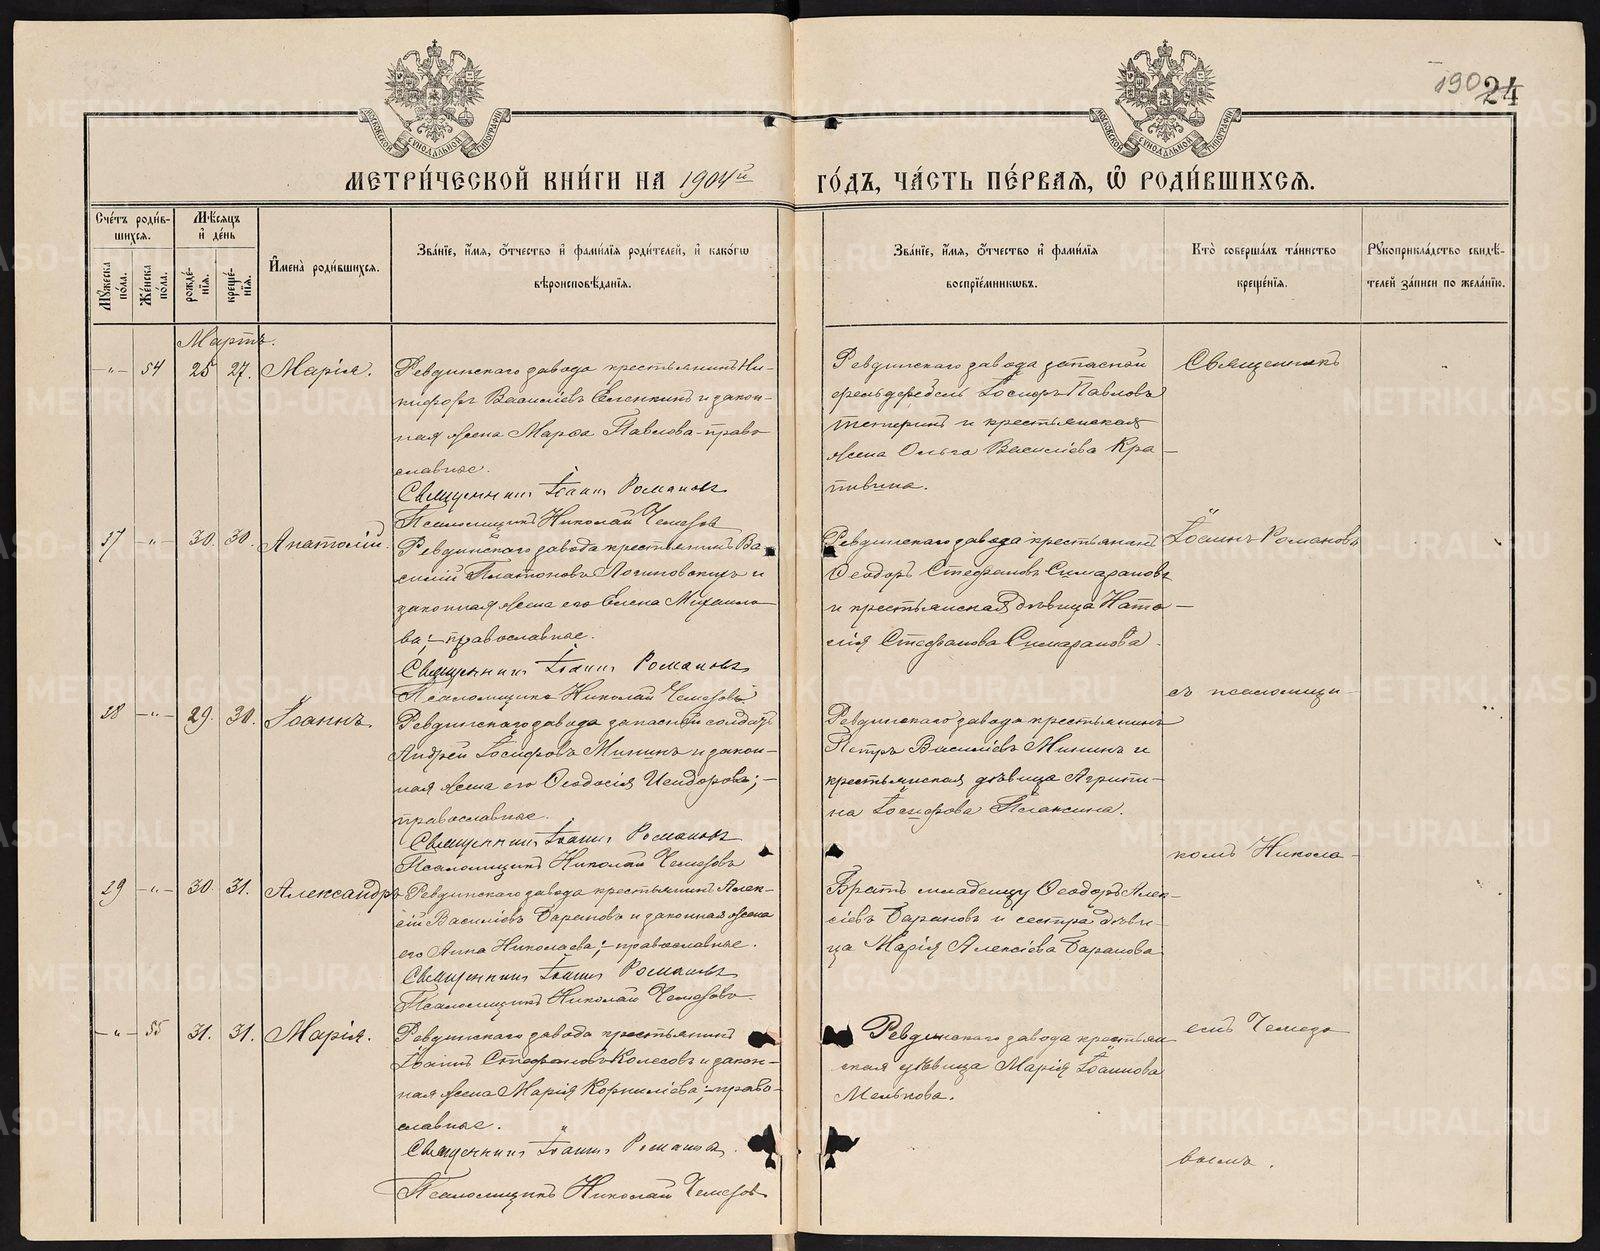 190
24
МОСКОВСКОЙ СУНОДАЛЬНОЙ ТИПОГРАФІИ
МОСКОВСКОЙ СУНОДАЛЬНОЙ ТИПОГРАФІИ
МЕТРИ́ЧЕСКОЙ КНИ́ГИ НА 1904й ГО́ДЪ, ЧА́СТЬ ПЕ́РВАѦ, Ѽ РОДИ́ВШИХСѦ.
Сче́тъ роди́в-
шихсѧ.
Мѣ́сѧцъ
и҆ де́нь
Мꙋ́жеска по́ла.
Же́нска по́ла.
рожде́-
нїѧ.
креще́-
нїѧ.
И҆мена̀ роди́вшихсѧ.
Зва́нїе, и҆́мѧ, ѻ҆́тчество и҆ фами́лїѧ роди́телей, и҆ како́гѡ
вѣроисповѣ́данїѧ.
Зва́нїе, и҆́мѧ, ѻ҆́тчество и҆ фами́лїѧ
воспрїе́мникѡвъ.
Кто̀ соверша́лъ та́инство
креще́нїѧ.
Рꙋкоприкла́дство свидѣ́-
телей за́писи по жела́нїю.
Мартъ.
-"- 54 25 27. Марія.
Ревдинскаго завода крестьянинъ Ни-
кифоръ Василіевъ Еленкинъ и закон-
ная жена Марѳа Павлова - право
славные.
Священникъ Іоаннъ Романовъ
Псаломщикъ Николай Чемезовъ
Ревдинскаго завода запасной
фельдфебель Іосифъ Павловъ
Тетеринъ и крестьянская
жена Ольга Василіева Кра-
пивина.
Священникъ
37 -"- 30. 30. Анатолій.
Ревдинскаго завода крестьянинъ Ва-
силій Платоновъ Логиновскихъ и
законная жена его Елена Михаило-
ва; - православные.
Священникъ Іоаннъ Романовъ
Псаломщикъ Николай Чемезовъ
Ревдинскаго завода крестьянинъ
Ѳеодоръ Стефановъ
и крестьянская дѣвица Ната-
лія Стефанова
Іоаннъ Романовъ
съ псаломщи-
38 -"- 29. 30. Іоаннъ
Ревдинскаго завода запасной солдатъ
Андрей Іосифовъ Мининъ и закон-
ная жена его Ѳеодосія Исидорова; -
православные.
Священникъ Іоаннъ Романовъ
Псаломщикъ Николай Чемезовъ
Ревдинскаго завода крестьянинъ
Петръ Василіевъ Мининъ и
крестьянская дѣвица Агрипи-
на Іосифова Плаксина.
комъ Никола-
29 -"- 30. 31. Александръ
Ревдинскаго завода крестьянинъ Алек-
сій Василіевъ Барановъ и законная жена
его Анна Николаева; - православные.
Священникъ Іоаннъ Романовъ
Псаломщикъ Николай Чемезовъ.
Братъ младенцу Ѳеодоръ Алек-
сіевъ Барановъ и сестра дѣви-
ца Марія Алексіева Баранова
-"- 55 31. 31. Марія.
Ревдинскаго завода крестьянинъ
Іоаннъ Стефановъ Колесовъ и закон-
ная жена Марія Корнилієва; - право-
славные.
Священникъ Іоаннъ Романовъ.
Псаломщикъ Николай Чемезовъ
Ревдинскаго завода крестьян
ская дѣвица Марія Іоаннова
Мелькова.
емъ Чемезо
вымъ.
METRIKI.GASO-URAL.RU